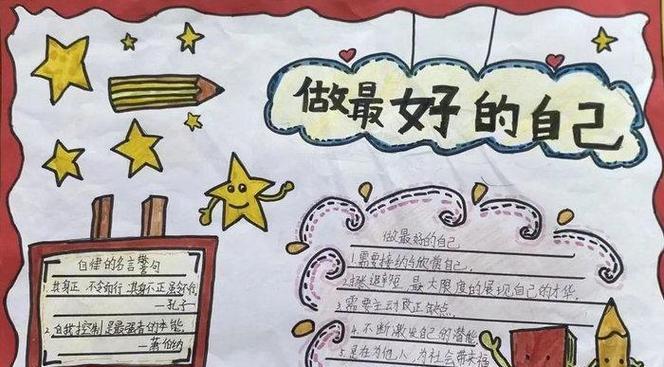 做最好的自己
自律的名言警句
1.其身正,不令而行,其身不正虽令不
—孔子
2.自我控制是最强者的本能。
—萧伯纳
做最好的自己
1.需要接纳欣赏自己。
2.最大限度的展现自己的才华。
3.需要主动改正缺点。
4.不断激发自己的潜能
5.是在为他人,为社会带来福